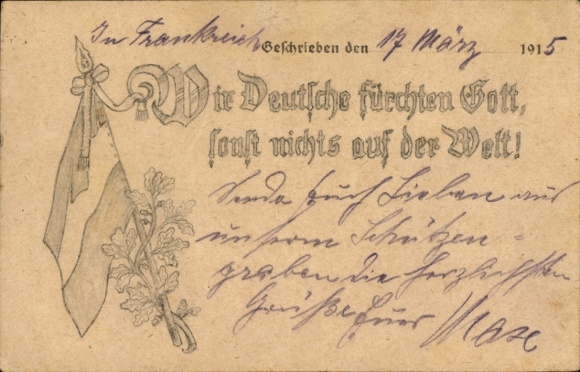 In Frankreich Geschrieben den 17 März 1915
Wir Deutsche fürchten Gott,
sonst nichts auf der Welt!
Sende Euch Lieben aus
unserm Schützen-
graben die herzlichsten
Grüße Euer Max